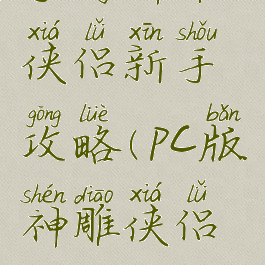 xiá lǚ xīn shǒu
侠侣新手
gōng lüè bǎn
攻略(PC版
shén diāo xiá lǚ
神雕侠侣